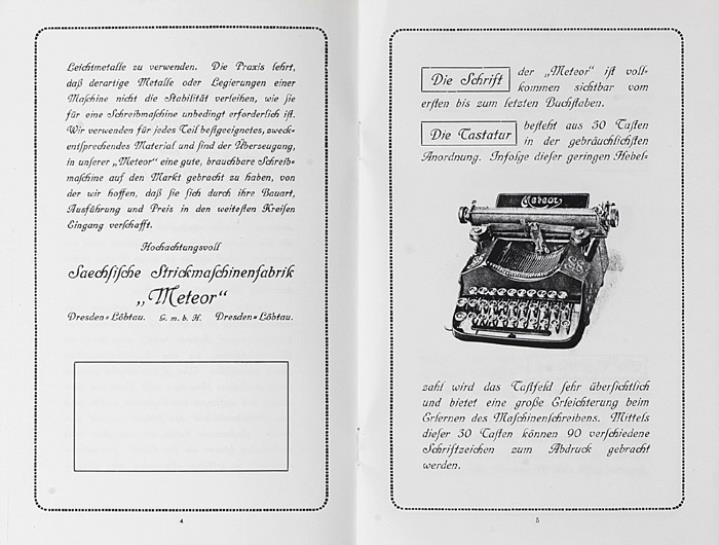 Leichtmetalle zu verwenden. Die Praxis lehrt,
daß derartige Metalle oder Legierungen einer
Maſchine nicht die Stabilität verleihen, wie ſie
für eine Schreibmaſchine unbedingt erforderlich iſt.
Wir verwenden für jedes Teil beſtgeeignetes, zweck-
entſprechendes Material und ſind der Überzeugung,
in unſerer „Meteor" eine gute, brauchbare Schreib-
maſchine auf den Markt gebracht zu haben, von
der wir hoffen, daß ſie ſich durch ihre Bauart,
Ausführung und Preis in den weiteſten Kreiſen
Eingang verſchafft.
Hochachtungsvoll
Saechſiſche Strickmaſchinenfabrik
„Meteor"
Dresden-Löbtau. G. m. b. H. Dresden-Löbtau.
4
Die Schrift der „Meteor" iſt voll-
kommen ſichtbar vom
erſten bis zum letzten Buchſtaben.
Die Taſtatur beſteht aus 30 Taſten
in der gebräuchlichſten
Anordnung. Infolge dieſer geringen Hebel-
Meteor
zahl wird das Taſtfeld ſehr überſichtlich
und bietet eine große Erleichterung beim
Erlernen des Maſchinenſchreibens. Mittels
dieſer 30 Taſten können 90 verſchiedene
Schriftzeichen zum Abdruck gebracht
werden.
5